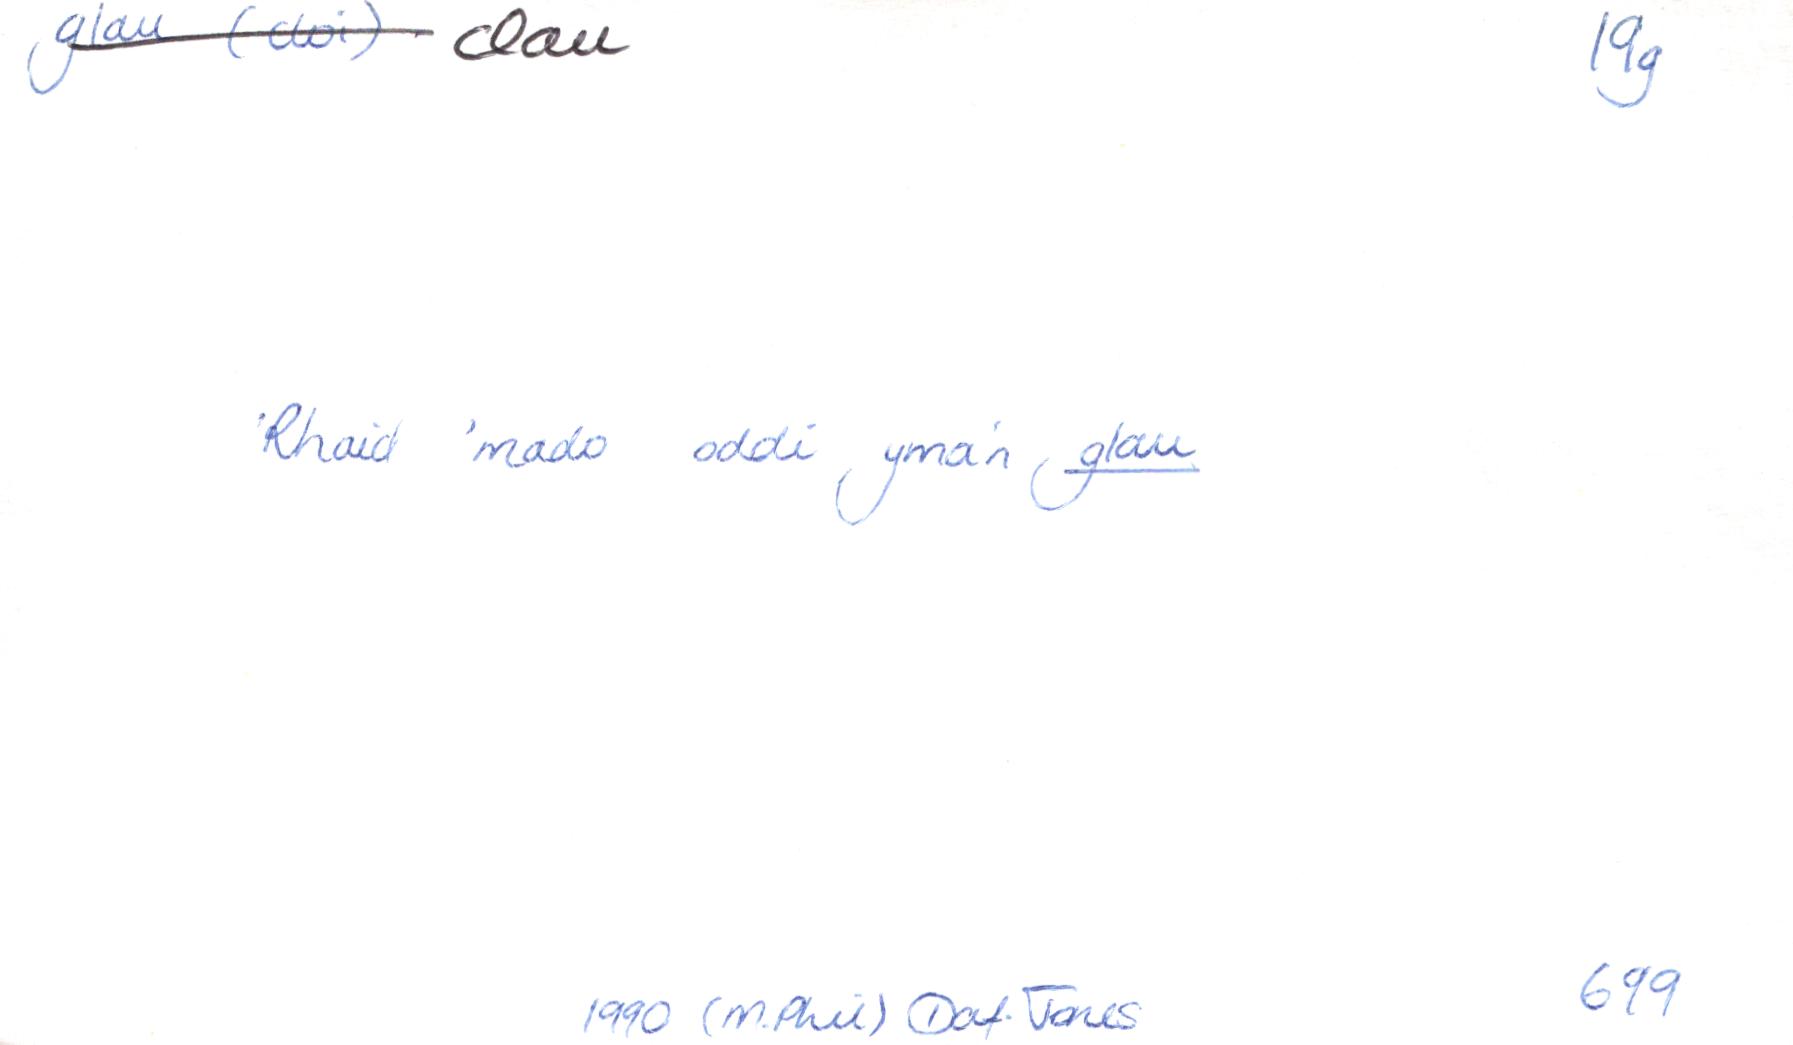 glau (cloi) clau 19g
'Rhaid 'mado oddi yma'n glau
699
1990 (M.Phil) Daf. Jones